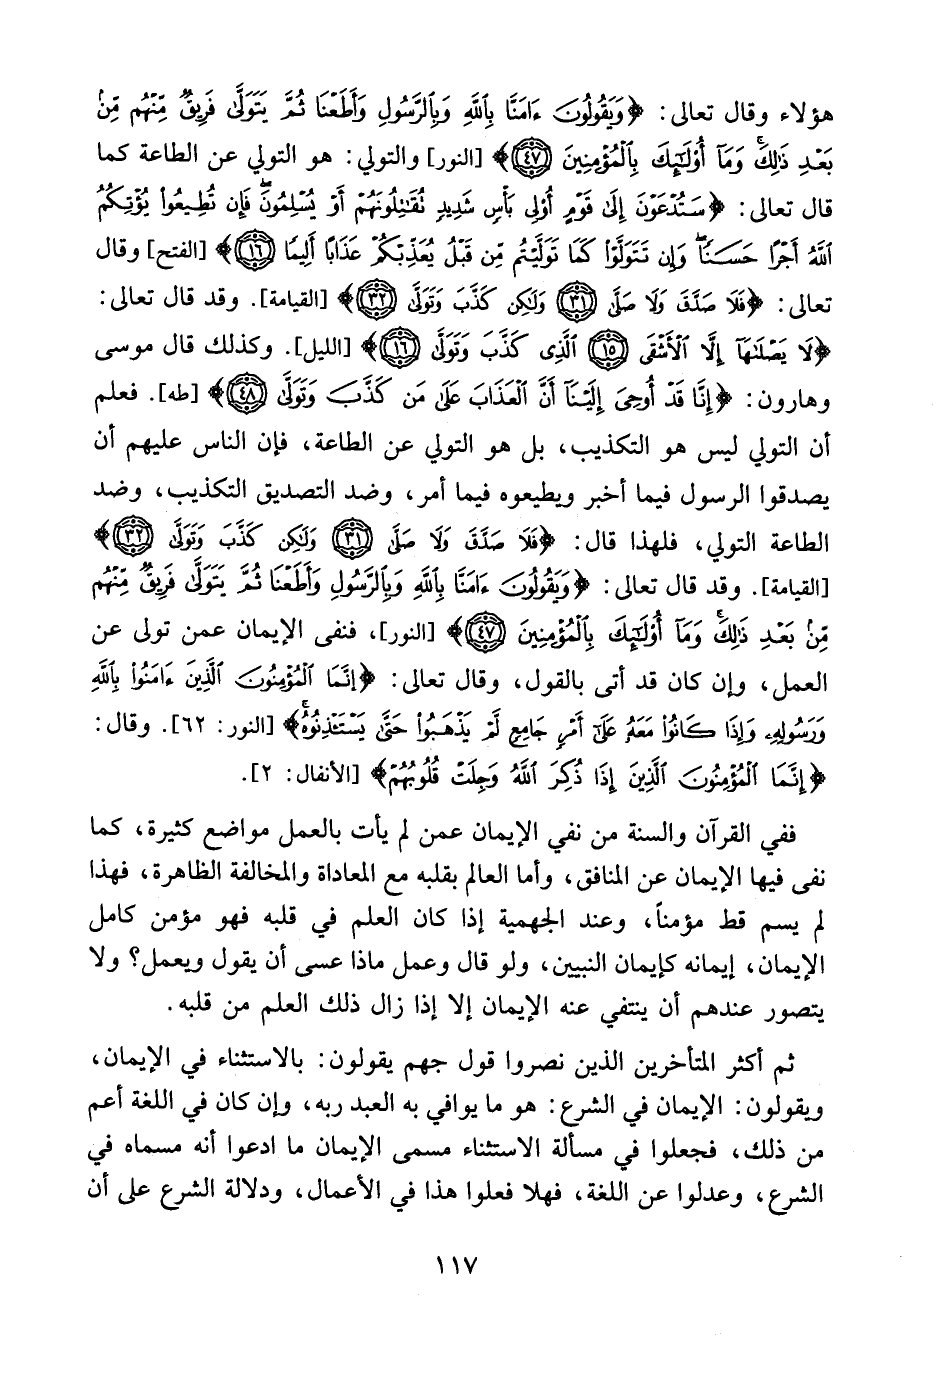 هؤلاء وقال تعالى: ﴿وَيَقُولُونَ ءَامَنَّا بِٱللَّهِ وَبِٱلرَّسُولِ وَأَطَعْنَا ثُمَّ يَتَوَلَّىٰ فَرِيقٌ مِّنْهُم مِّنۢ
بَعْدِ ذَٰلِكَ ۚ وَمَآ أُو۟لَـٰٓئِكَ بِٱلْمُؤْمِنِينَ ﴿٤٧﴾﴾ [النور] والتولي: هو التولي عن الطاعة كما
قال تعالى: ﴿سَتُدْعَوْنَ إِلَىٰ قَوْمٍ أُو۟لِى بَأْسٍ شَدِيدٍ تُقَـٰتِلُونَهُمْ أَوْ يُسْلِمُونَ ۖ فَإِن تُطِيعُوا۟ يُؤْتِكُمُ
ٱللَّهُ أَجْرًا حَسَنًا ۖ وَإِن تَتَوَلَّوْا۟ كَمَا تَوَلَّيْتُم مِّن قَبْلُ يُعَذِّبْكُمْ عَذَابًا أَلِيمًا ﴿١٦﴾﴾ [الفتح] وقال
تعالى: ﴿فَلَا صَدَّقَ وَلَا صَلَّىٰ ﴿٣١﴾ وَلَـٰكِن كَذَّبَ وَتَوَلَّىٰ ﴿٣٢﴾﴾ [القيامة]. وقد قال تعالى:
﴿لَا يَصْلَىٰهَآ إِلَّا ٱلْأَشْقَى ﴿١٥﴾ ٱلَّذِى كَذَّبَ وَتَوَلَّىٰ ﴿١٦﴾﴾ [الليل]. وكذلك قال موسى
وهارون: ﴿إِنَّا قَدْ أُوحِىَ إِلَيْنَآ أَنَّ ٱلْعَذَابَ عَلَىٰ مَن كَذَّبَ وَتَوَلَّىٰ ﴿٤٨﴾﴾ [طه]. فعلم
أن التولي ليس هو التكذيب، بل هو التولي عن الطاعة، فإن الناس عليهم أن
يصدقوا الرسول فيما أخبر ويطيعوه فيما أمر، وضد التصديق التكذيب، وضد
الطاعة التولي، فلهذا قال: ﴿فَلَا صَدَّقَ وَلَا صَلَّىٰ ﴿٣١﴾ وَلَـٰكِن كَذَّبَ وَتَوَلَّىٰ ﴿٣٢﴾﴾
[القيامة]. وقد قال تعالى: ﴿وَيَقُولُونَ ءَامَنَّا بِٱللَّهِ وَبِٱلرَّسُولِ وَأَطَعْنَا ثُمَّ يَتَوَلَّىٰ فَرِيقٌ مِّنْهُم
مِّنۢ بَعْدِ ذَٰلِكَ ۚ وَمَآ أُو۟لَـٰٓئِكَ بِٱلْمُؤْمِنِينَ ﴿٤٧﴾﴾ [النور]، فنفى الإيمان عمن تولى عن
العمل، وإن كان قد أتى بالقول، وقال تعالى: ﴿إِنَّمَا ٱلْمُؤْمِنُونَ ٱلَّذِينَ ءَامَنُوا۟ بِٱللَّهِ
وَرَسُولِهِۦ وَإِذَا كَانُوا۟ مَعَهُۥ عَلَىٰٓ أَمْرٍ جَامِعٍ لَّمْ يَذْهَبُوا۟ حَتَّىٰ يَسْتَـْٔذِنُوهُ ۚ﴾ [النور: ٦٢]. وقال:
﴿إِنَّمَا ٱلْمُؤْمِنُونَ ٱلَّذِينَ إِذَا ذُكِرَ ٱللَّهُ وَجِلَتْ قُلُوبُهُمْ﴾ [الأنفال: ٢].
ففي القرآن والسنة من نفي الإيمان عمن لم يأت بالعمل مواضع كثيرة، كما
نفى فيها الإيمان عن المنافق، وأما العالم بقلبه مع المعاداة والمخالفة الظاهرة، فهذا
لم يسم قط مؤمناً، وعند الجهمية إذا كان العلم في قلبه فهو مؤمن كامل
الإيمان، إيمانه كإيمان النبيين، ولو قال وعمل ماذا عسى أن يقول ويعمل؟ ولا
يتصور عندهم أن ينتفي عنه الإيمان إلا إذا زال ذلك العلم من قلبه.
ثم أكثر المتأخرين الذين نصروا قول جهم يقولون: بالاستثناء في الإيمان،
ويقولون: الإيمان في الشرع: هو ما يوافي به العبد ربه، وإن كان في اللغة أعم
من ذلك، فجعلوا في مسألة الاستثناء مسمى الإيمان ما ادعوا أنه مسماه في
الشرع، وعدلوا عن اللغة، فهلا فعلوا هذا في الأعمال، ودلالة الشرع على أن
١١٧